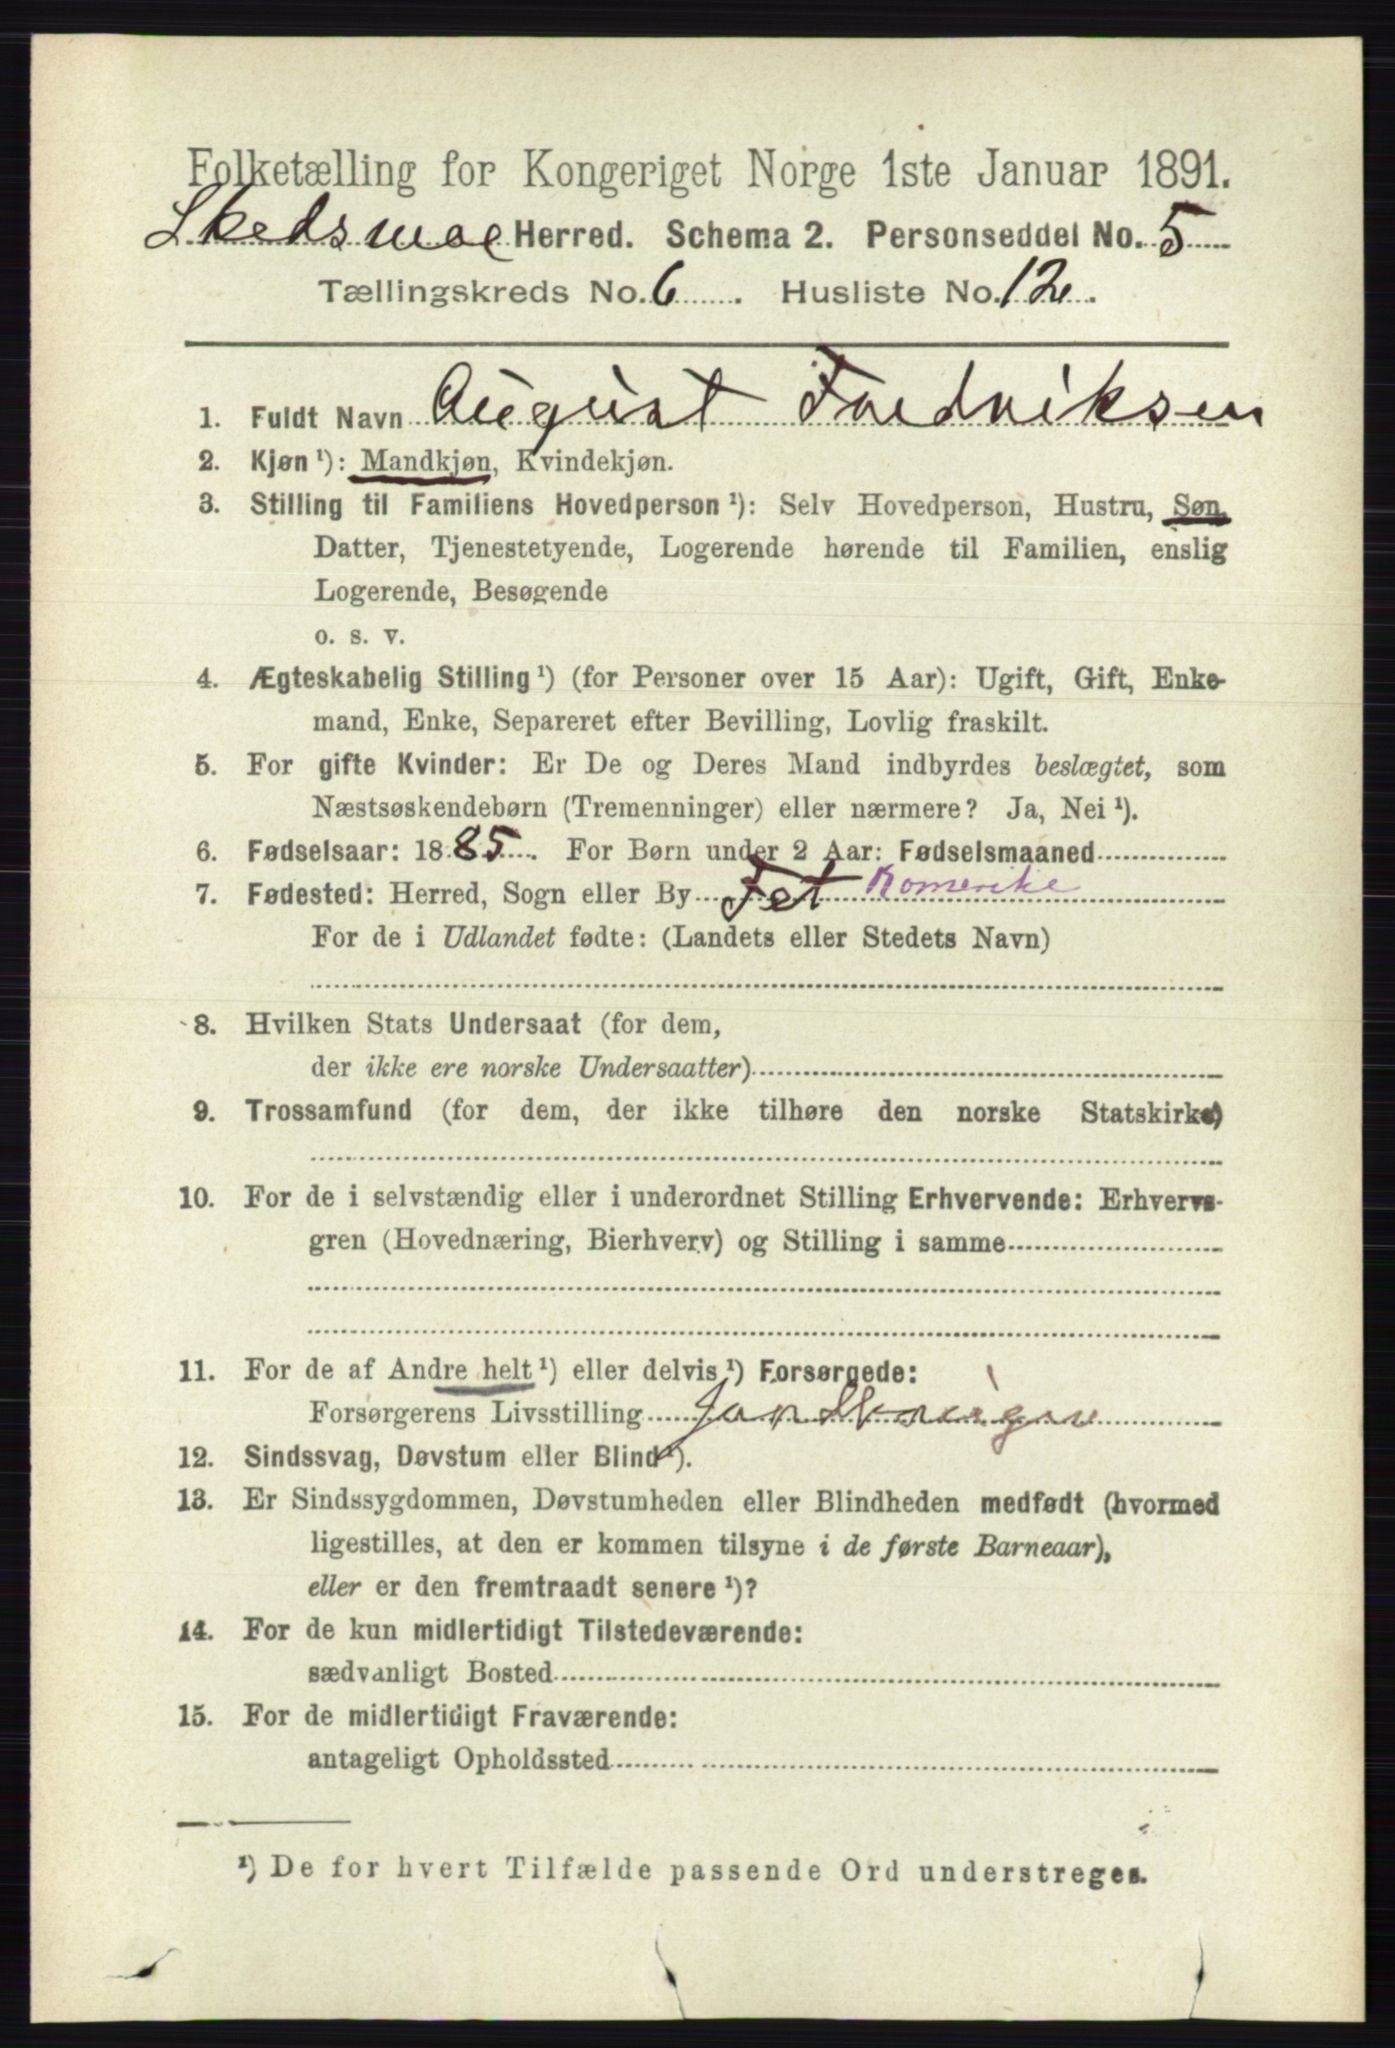 Folketælling for Kongeriget Norge 1ste Januar 1891.
Skedsmoe Herred. Schema 2. Personseddel No. 5
Tællingskreds No. 6. Husliste No. 12.
1. Fuldt Navn August Fredriksen
2. Kjøn ¹): Mandkjøn, Kvindekjøn.
3. Stilling til Familiens Hovedperson ¹): Selv Hovedperson, Hustru, Søn,
Datter, Tjenestetyende, Logerende hørende til Familien, enslig
Logerende, Besøgende
o. s. v.
4. Ægteskabelig Stilling ¹) (for Personer over 15 Aar): Ugift, Gift, Enke-
mand, Enke, Separeret efter Bevilling, Lovlig fraskilt.
5. For gifte Kvinder: Er De og Deres Mand indbyrdes beslægtet, som
Næstsøskendebørn (Tremenninger) eller nærmere? Ja, Nei ¹).
6. Fødselsaar: 1885. For Børn under 2 Aar: Fødselsmaaned
7. Fødested: Herred, Sogn eller By Fet Romerike
For de i Udlandet fødte: (Landets eller Stedets Navn)
8. Hvilken Stats Undersaat (for dem,
der ikke ere norske Undersaatter)
9. Trossamfund (for dem, der ikke tilhøre den norske Statskirke)
10. For de i selvstændig eller i underordnet Stilling Erhvervende: Erhvervs-
gren (Hovednæring, Bierhverv) og Stilling i samme
11. For de af Andre helt ¹) eller delvis ¹) Forsørgede:
Forsørgerens Livsstilling
12. Sindssvag, Døvstum eller Blind ¹).
13. Er Sindssygdommen, Døvstumheden eller Blindheden medfødt (hvormed
ligestilles, at den er kommen tilsyne i de første Barneaar),
eller er den fremtraadt senere ¹)?
14. For de kun midlertidigt Tilstedeværende:
sædvanligt Bosted
15. For de midlertidigt Fraværende:
antageligt Opholdssted
¹) De for hvert Tilfælde passende Ord understreges.